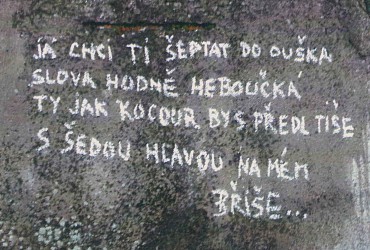 JÁ CHCI TI ŠEPTAT DO OUŠKA
SLOVA HODNĚ HEBOUČKÁ
TY JAK KOCOUR BYS PŘEDL TIŠE
S ŠEDOU HLAVOU NA MÉM
BŘIŠE...